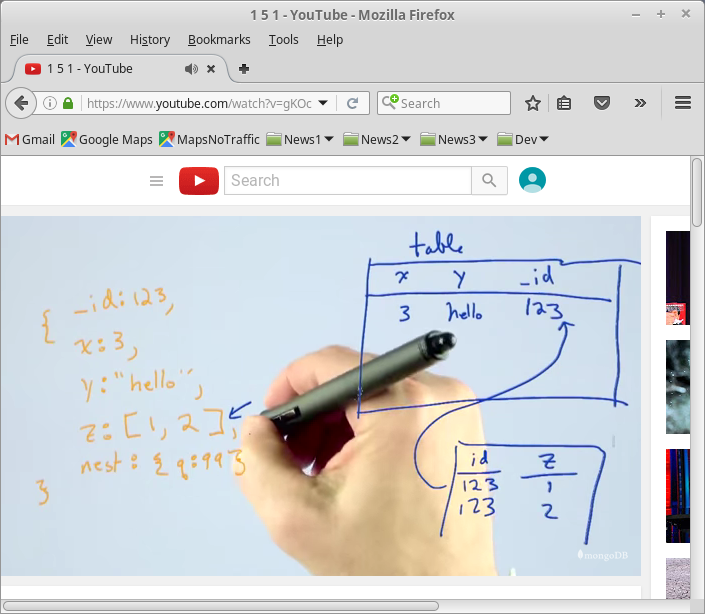 1 5 1 - YouTube - Mozilla Firefox
File Edit View History Bookmarks Tools Help
1 5 1 - YouTube
https://www.youtube.com/watch?v=gKOc
Search
Gmail Google Maps MapsNoTraffic News1 News2 News3 Dev
Search
table
x y _id
3 hello 123
{ _id: 123,
x: 3,
y: "hello",
z: [1, 2],
nest: { q: 99 }
}
id z
123 1
123 2
mongoDB